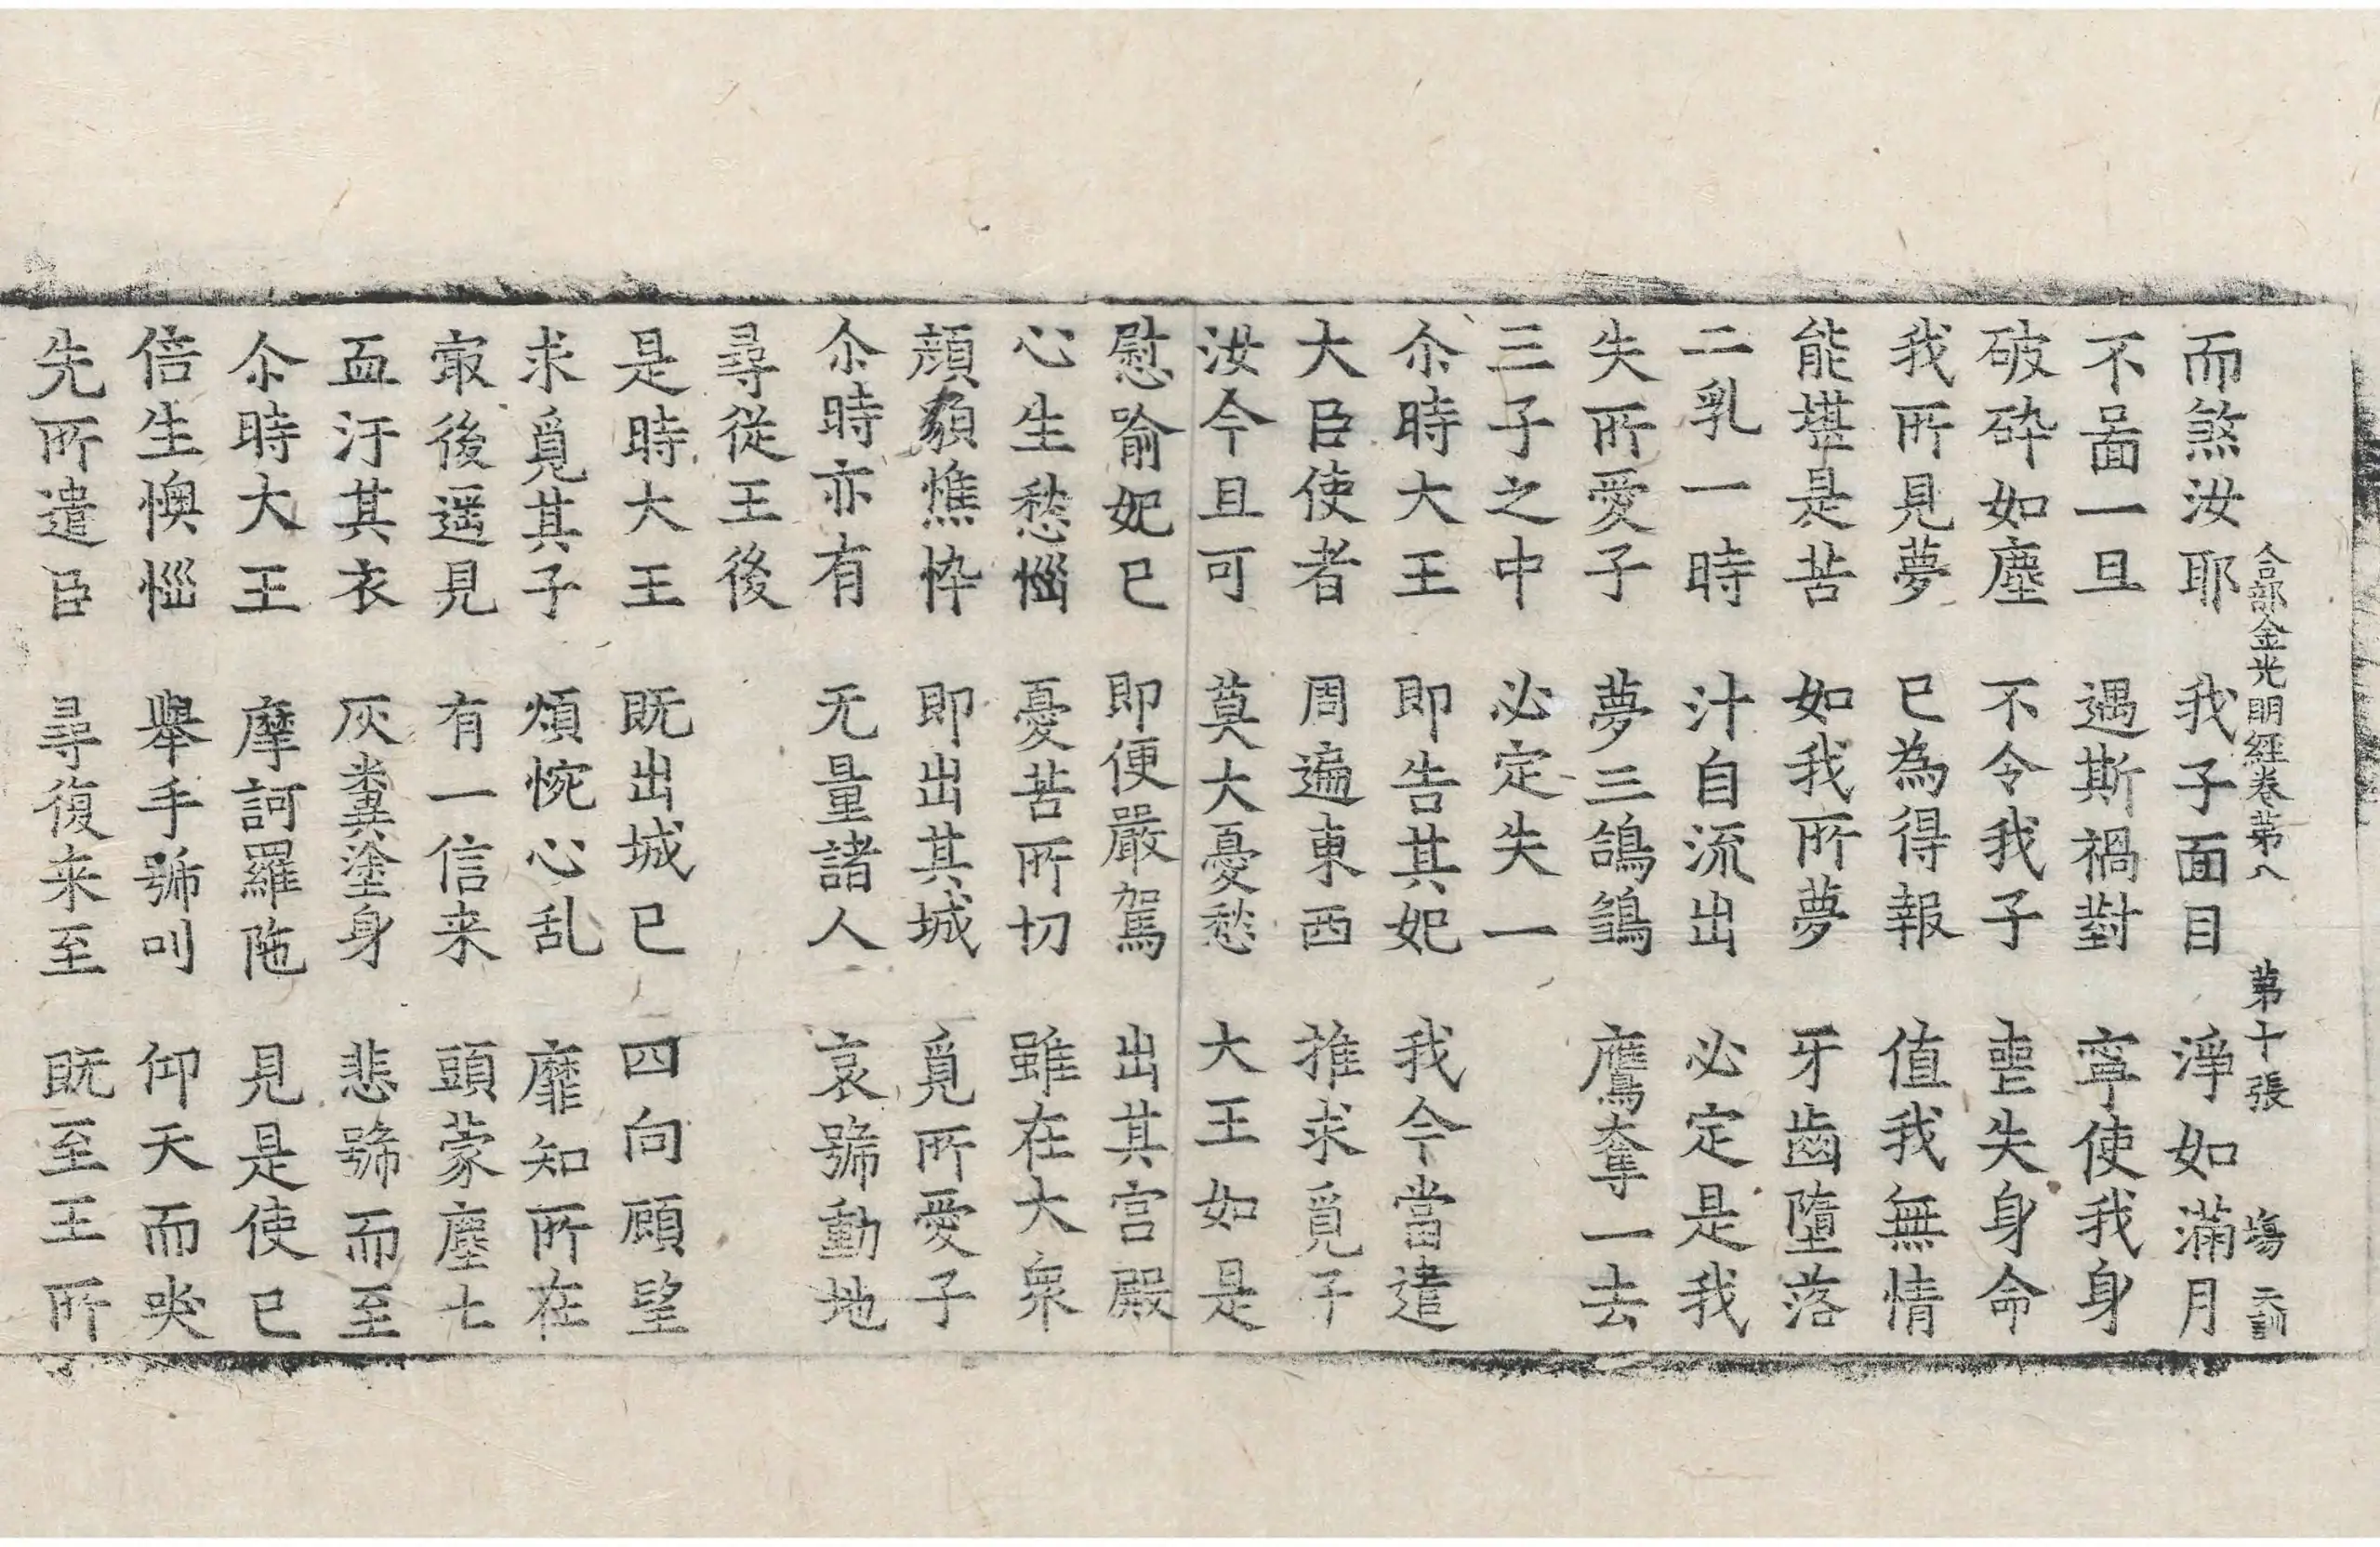 合部金光明經卷第八　第十張　塲　天訓
而煞汝耶　我子面目　淨如滿月
不啚一旦　遇斯禍對　寧使我身
破碎如塵　不令我子　喪失身命
我所見夢　已為得報　值我無情
能堪是苦　如我所夢　牙齒墮落
二乳一時　汁自流出　必定是我
失所愛子　夢三鴿鶵　鷹奪一去
三子之中　必定失一
尒時大王　即告其妃　我今當遣
大臣使者　周遍東西　推求覓子
汝今且可　莫大憂愁　大王如是
慰喻妃已　即便嚴駕　出其宮殿
心生愁惱　憂苦所切　雖在大衆
顔㒵憔悴　即出其城　覓所愛子
尒時亦有　无量諸人　哀號動地
尋從王後
是時大王　既出城已　四向顧望
求覓其子　煩惋心乱　靡知所在
㝡後遥見　有一信来　頭蒙塵土
血汙其衣　灰糞塗身　悲號而至
尒時大王　摩訶羅陁　見是使已
倍生懊惱　舉手號叫　仰天而哭
先所遣臣　尋復来至　既至王所